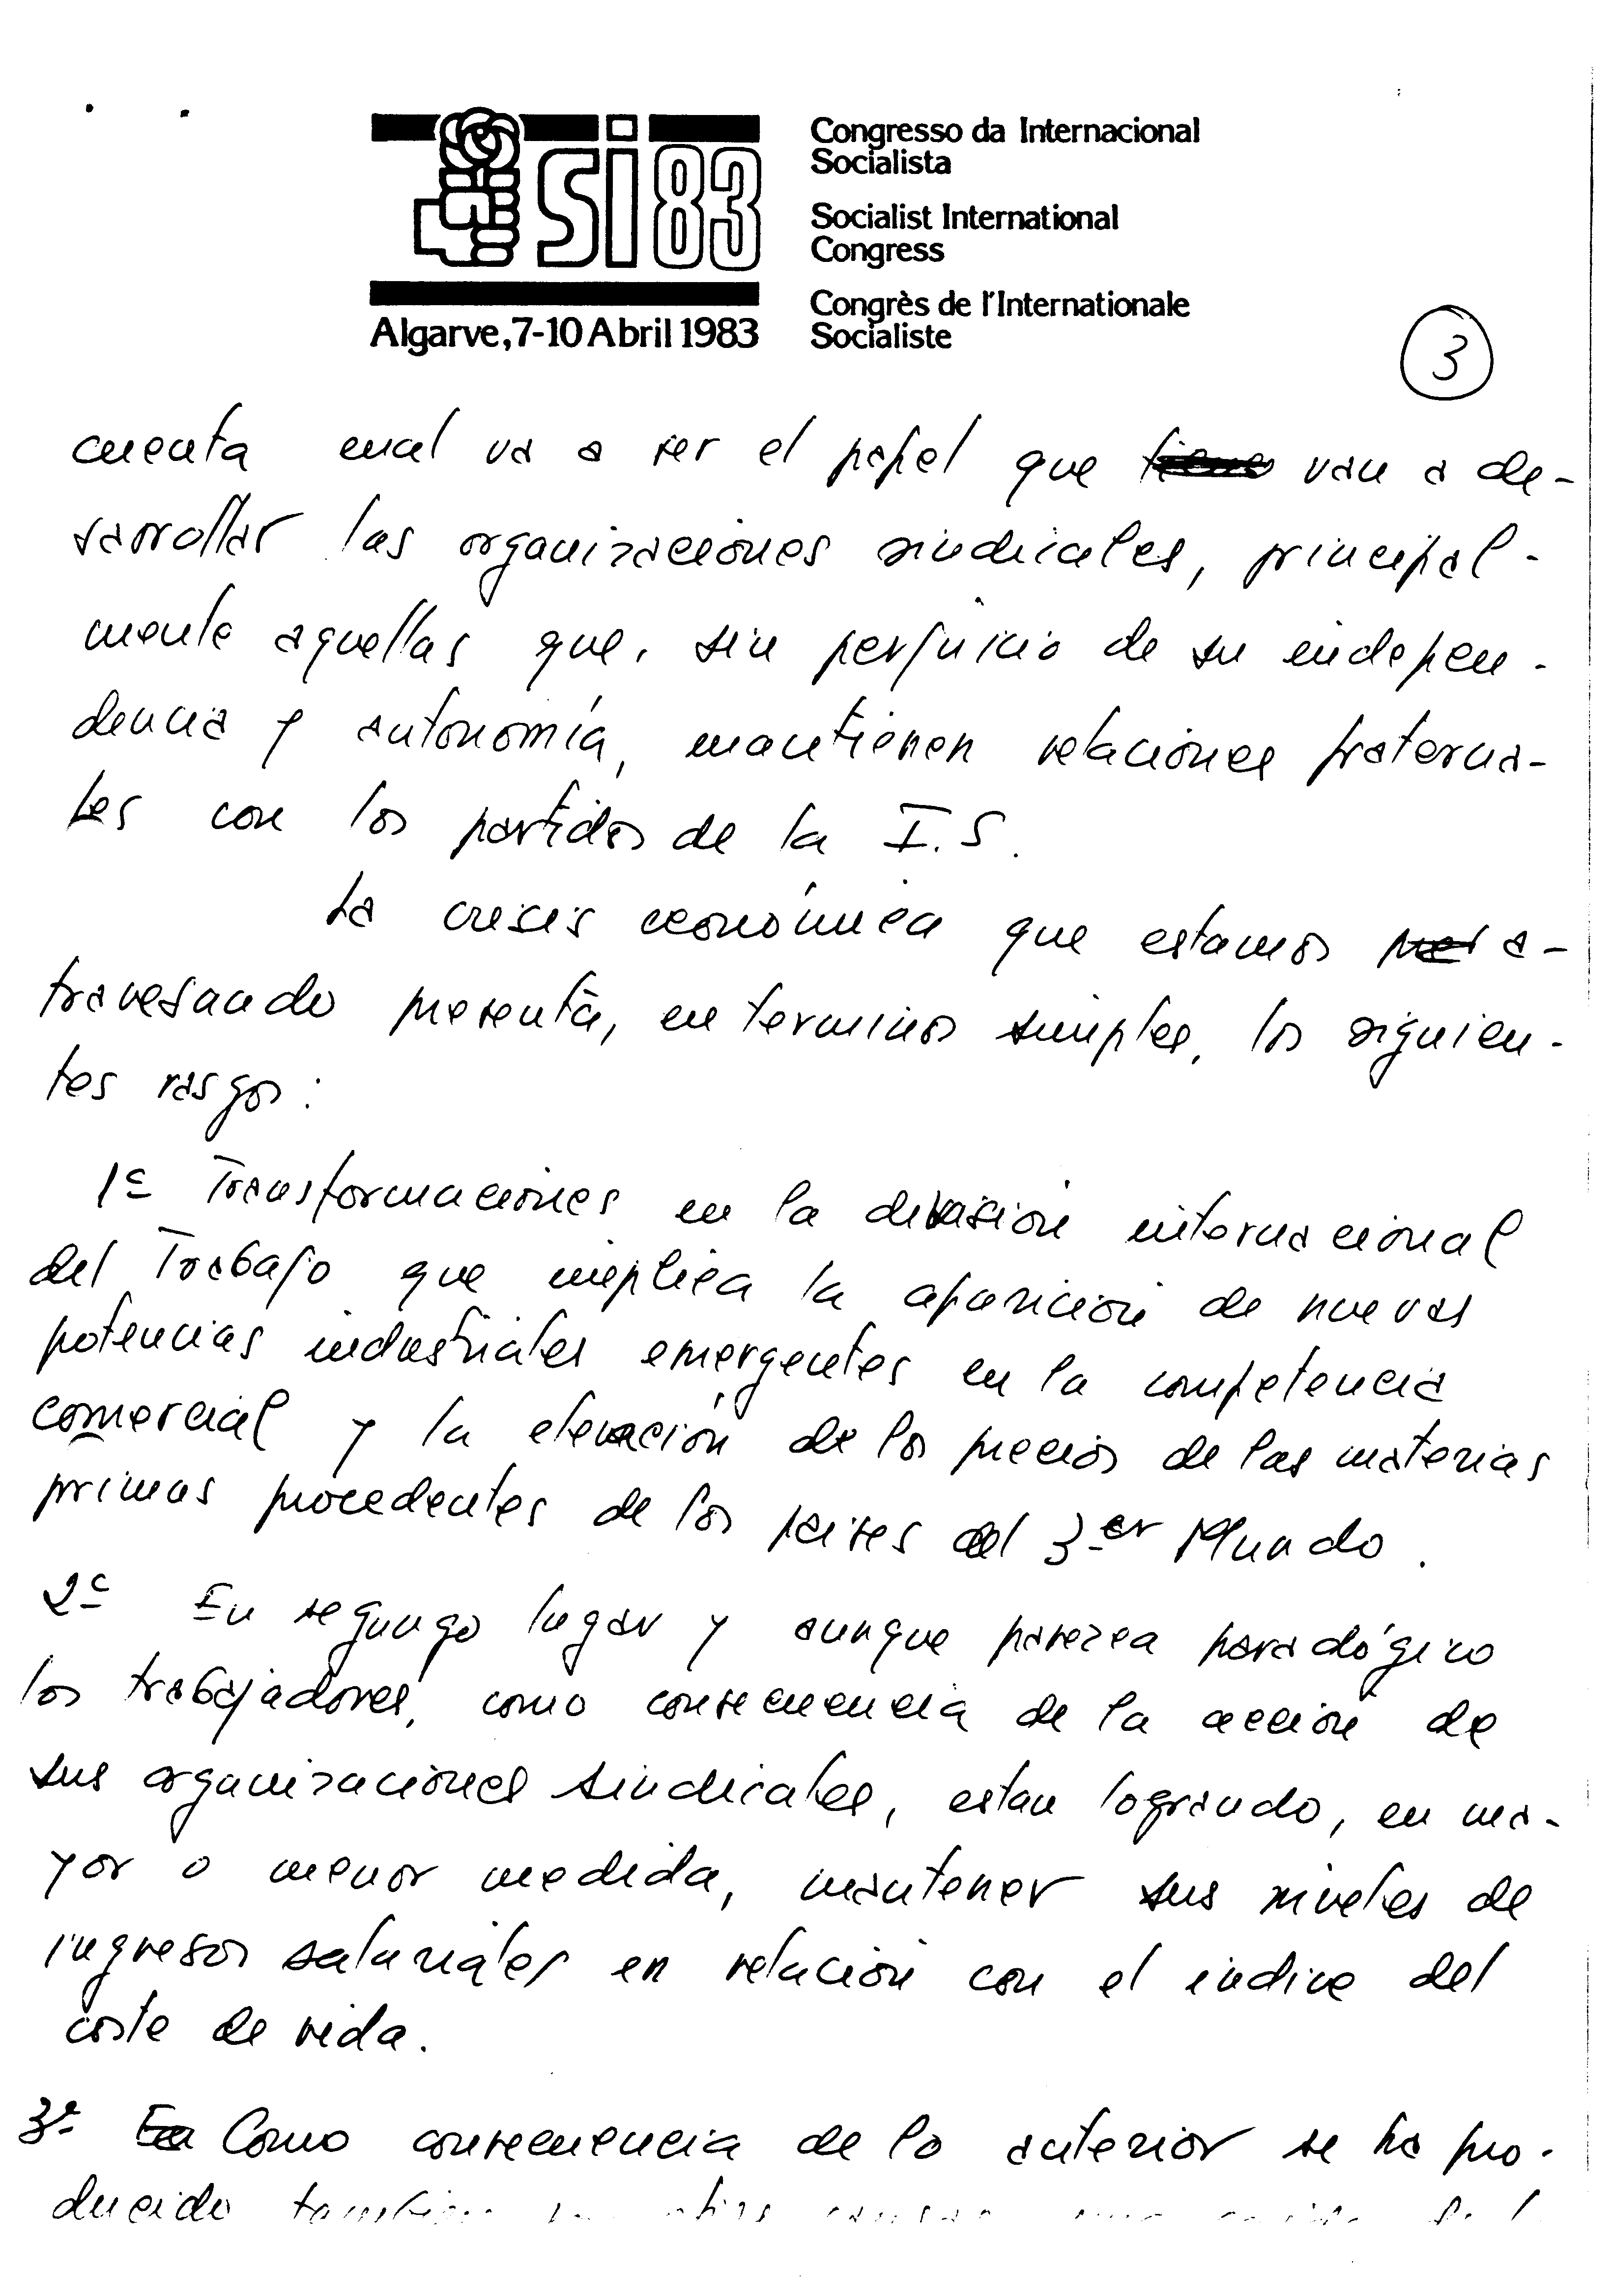 si83
Algarve, 7-10 Abril 1983
Congresso da Internacional
Socialista
Socialist International
Congress
Congrès de l'Internationale
Socialiste
3
cuenta cual va a ser el papel que tiene van a de-
sarrollar las organizaciones sindicales, principal-
mente aquellas que, sin perjuicio de su indepen-
dencia y autonomía, mantienen relaciones fraterna-
les con los partidos de la I.S.
La crisis económica que estamos a-
travesando presenta, en terminos simples, los siguien-
tes rasgos:
1º Transformaciones en la division internacional
del Trabajo que implica la aparición de nuevas
potencias industriales emergentes en la competencia
comercial y la elevación de los precios de las materias
primas procedentes de los paises del 3er Mundo.
2º En segungo lugar y aunque parezca paradógico
los trabajadores, como consecuencia de la acción de
sus organizaciones sindicales, estan logrando, en ma-
yor o menor medida, mantener sus niveles de
ingresos salariales en relación con el indice del
coste de vida.
3º En Como consecuencia de lo anterior se ha pro-
ducido tambien